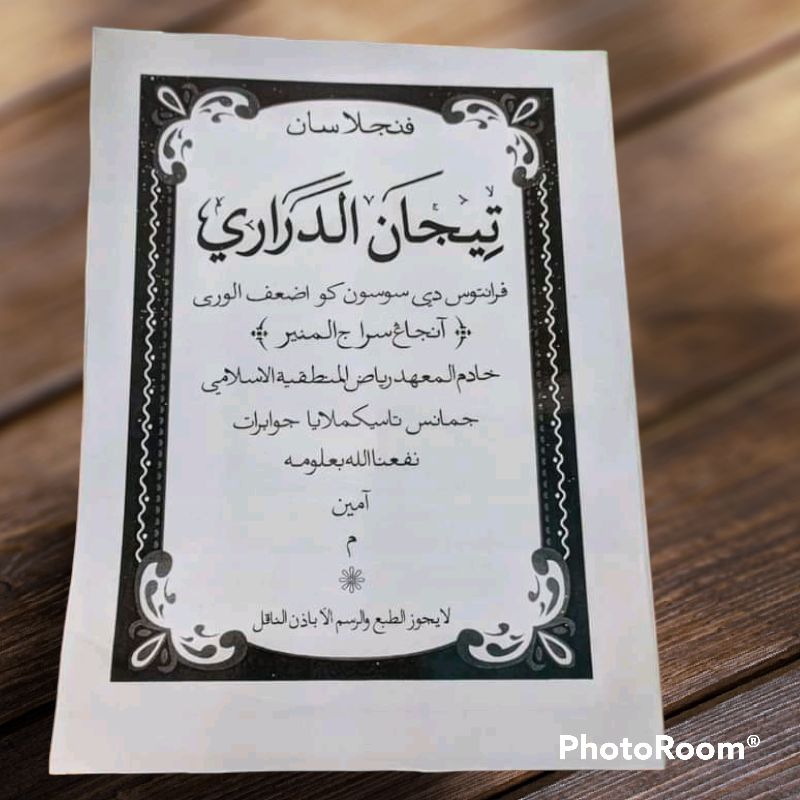 فنجلاسان
تِيجَان الدَرَاري
فرانتوس دي سوسون كو اضعف الورى
﴿ آنجاڠ سراج المنير ﴾
خادم المعهد رياض المنطقية الاسلامي
جمانس تاسيكملايا جوابرات
نفعنا الله بعلومه
آمين
م
لايجوز الطبع والرسم الآ باذن الناقل
PhotoRoom®